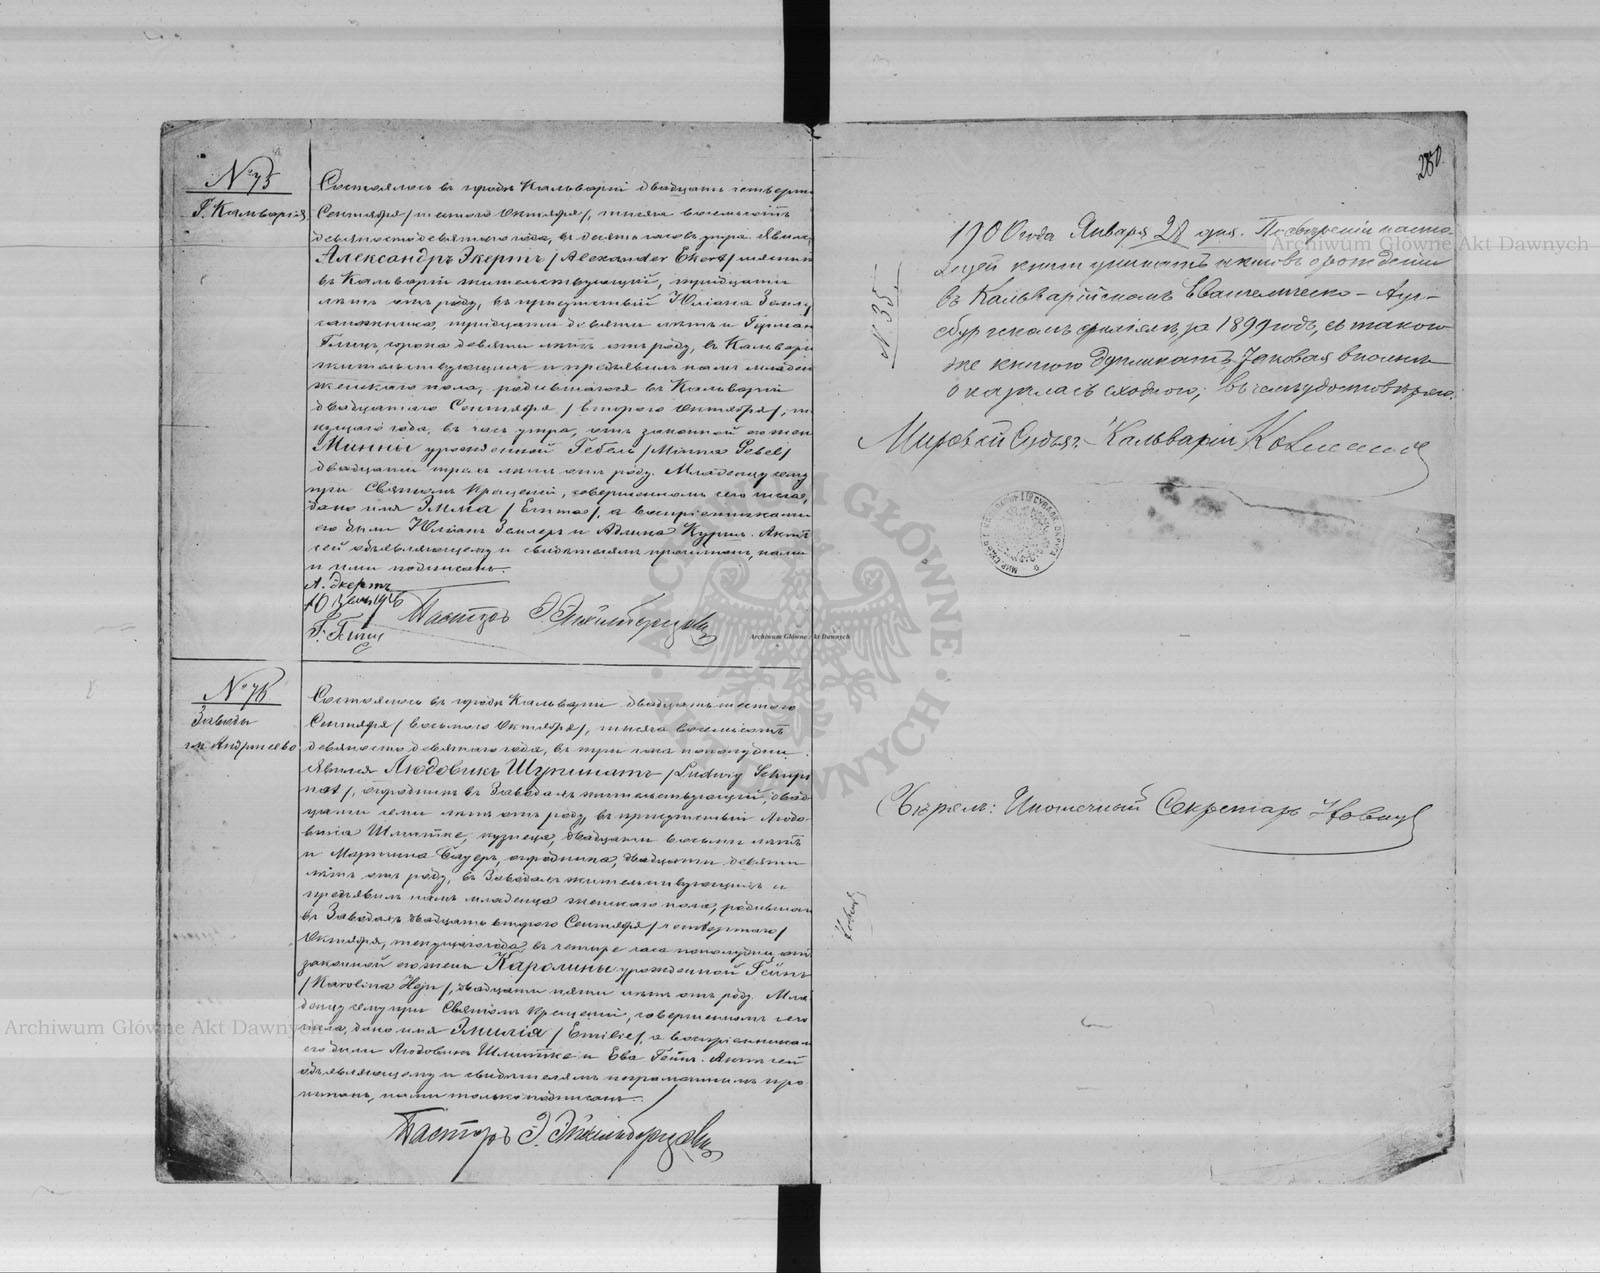 № 75
Г. Кальварія
Состоялось въ городѣ Кальваріи двадцать четверт
Сентября /шестого Октября/, тысяча восемьсотъ
девяносто девятого года, въ десять часовъ утра. Явил
Александръ Экертъ /Alexander Ekert/
въ Кальваріи жительствующій, тридцати
лѣтъ отъ роду, въ присутствіи Юліана Зейлу
тридцати девяти лѣтъ и Герман
сорока девяти лѣтъ отъ роду, въ Кальварі
жительствующихъ и предъявилъ намъ младен
женскаго пола, родившагося въ Кальваріи
двадцатаго Сентября /второго Октября/, те
кущаго года, въ часъ утра, отъ законной его жен
Минны урожденной Гебель /Minna Gebel/
двадцати трехъ лѣтъ отъ роду. Младенцу сему
при Святомъ Крещеніи, совершенномъ сего числа,
дано имя Эмма /Emma/, а воспріемниками
его были Юліанъ Зейлеръ и Курцъ. Актъ
сей объявляющему и свидѣтелямъ прочитанъ, нами
и ими подписанъ.
А. Экертъ
Пасторъ
№ 76
Заводы
гм. Андржеево
Состоялось въ городѣ Кальваріи двадцать шестого
Сентября /восьмого Октября/, тысяча восемьсотъ
девяносто девятого года, въ три часа пополудни.
Явился Людовикъ Шупинатъ /Ludwig Schupi
nat/, огродникъ въ Заводахъ жительствующій, двад
цати семи лѣтъ отъ роду, въ присутствіи Людо
вика Шлитке, кузнеца, двадцати восьми лѣтъ
и Мартина Бауеръ, огродника, двадцати девяти
лѣтъ отъ роду, въ Заводахъ жительствующихъ и
предъявилъ намъ младенца женскаго пола, родившаг
въ Заводахъ двадцать второго Сентября /четвертаго/
Октября, текущаго года, въ четыре часа пополудни, отъ
законной его жены Каролины урожденной Гейнъ
/Karolina Hejn/, двадцати пяти лѣтъ отъ роду. Мла
денцу сему при Святомъ Крещеніи, совершенномъ сего
числа, дано имя Эмилія /Emilie/, а воспріемникам
его были Людовикъ Шлитке и Ева Гейнъ. Актъ сей
объявляющему и свидѣтелямъ неграмотнымъ про
читанъ, нами только подписанъ.
Пасторъ
280
№ 35
1900 года Января 28 дня. По свѣреніи насто
ящей книги уникатъ актовъ о рожденіи
въ Кальварійскомъ Евангелическо-Ауг-
сбургскомъ филіялѣ, за 1899 годъ, съ такою
же книгою дупликатъ, таковая вполнѣ
оказалась сходною, въ чемъ удостовѣряю.
Мировой Судья г. Кальваріи
Свѣрялъ: Ипотечный Секретарь
Archiwum Główne Akt Dawnych
Archiwum Główne Akt Dawnych
Archiwum Główne Akt Dawnych
ARCHIWUM GŁÓWNE AKT DAWNYCH